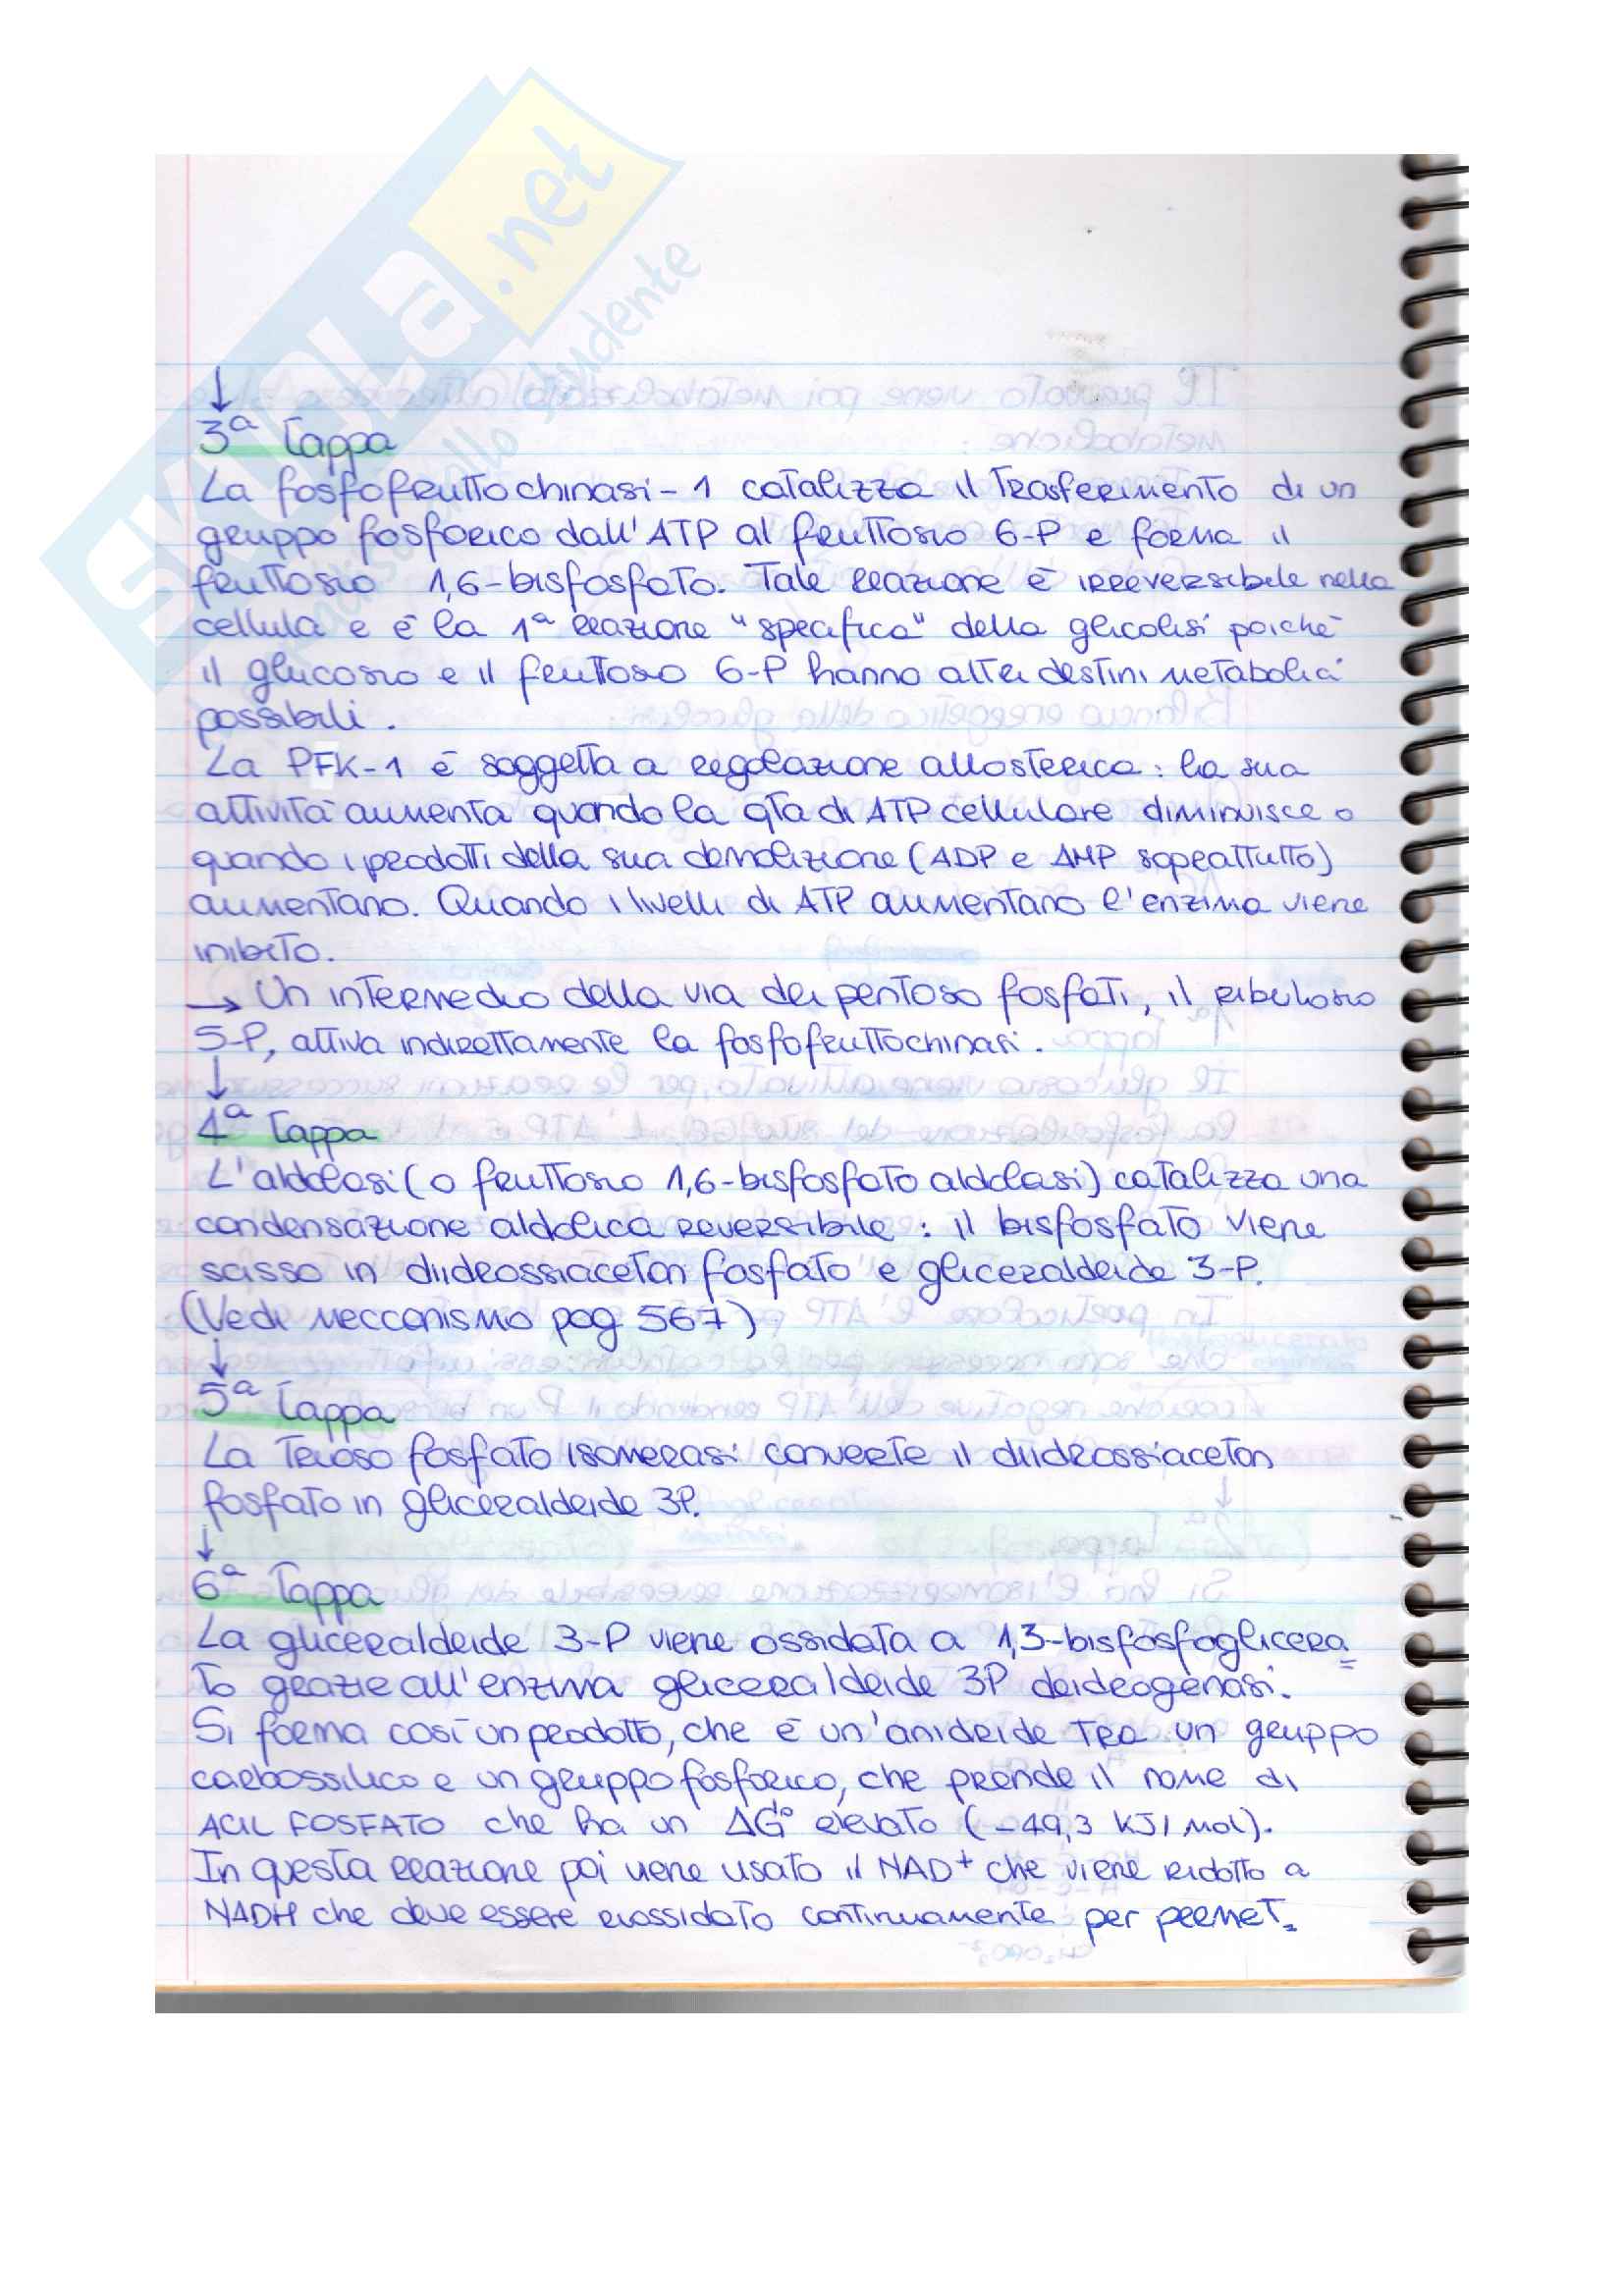 SKUOLA.net
↓
3ª Tappa
La fosfofruttochinasi-1 catalizza il trasferimento di un
gruppo fosforico dall'ATP al fruttosio 6-P e forma il
fruttosio 1,6-bisfosfato. Tale reazione è irreversibile nella
cellula e è la 1ª reazione "specifica" della glicolisi poiché
il glucosio e il fruttosio 6-P hanno altri destini metabolici
possibili.
La PFK-1 è soggetta a regolazione allosterica: la sua
attività aumenta quando la qtà di ATP cellulare diminuisce o
quando i prodotti della sua demolizione (ADP e AMP soprattutto)
aumentano. Quando i livelli di ATP aumentano l'enzima viene
inibito.
→ Un intermedio della via dei pentoso fosfati, il ribulosio
5-P, attiva indirettamente la fosfofruttochinasi.
↓
4ª Tappa
L'aldolasi (o fruttosio 1,6-bisfosfato aldolasi) catalizza una
condensazione aldolica reversibile: il bisfosfato viene
scisso in diidrossiaceton fosfato e gliceraldeide 3-P.
(Vedi meccanismo pag 567)
↓
5ª Tappa
La trioso fosfato isomerasi converte il diidrossiaceton
fosfato in gliceraldeide 3P.
↓
6ª Tappa
La gliceraldeide 3-P viene ossidata a 1,3-bisfosfoglicera=
to grazie all'enzima gliceraldeide 3P deidrogenasi.
Si forma così un prodotto, che è un'anidride tra un gruppo
carbossilico e un gruppo fosforico, che prende il nome di
ACIL FOSFATO che ha un ΔG'° elevato (-49,3 KJ/mol).
In questa reazione poi viene usato il NAD+ che viene ridotto a
NADH che deve essere riossidato continuamente per permet=